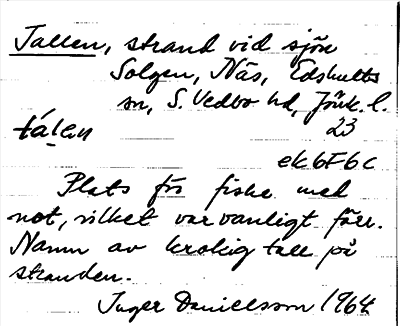 Tallen, strand vid sjön
Solgen, Näs, Edshults
sn, S. Vedbo hd, Jönk. l.
tálan 23
ek 6F6c
Plats för fiske med
not, vilket var vanligt förr.
Namn av krokig tall på
stranden.
Inger Danielsson 1964